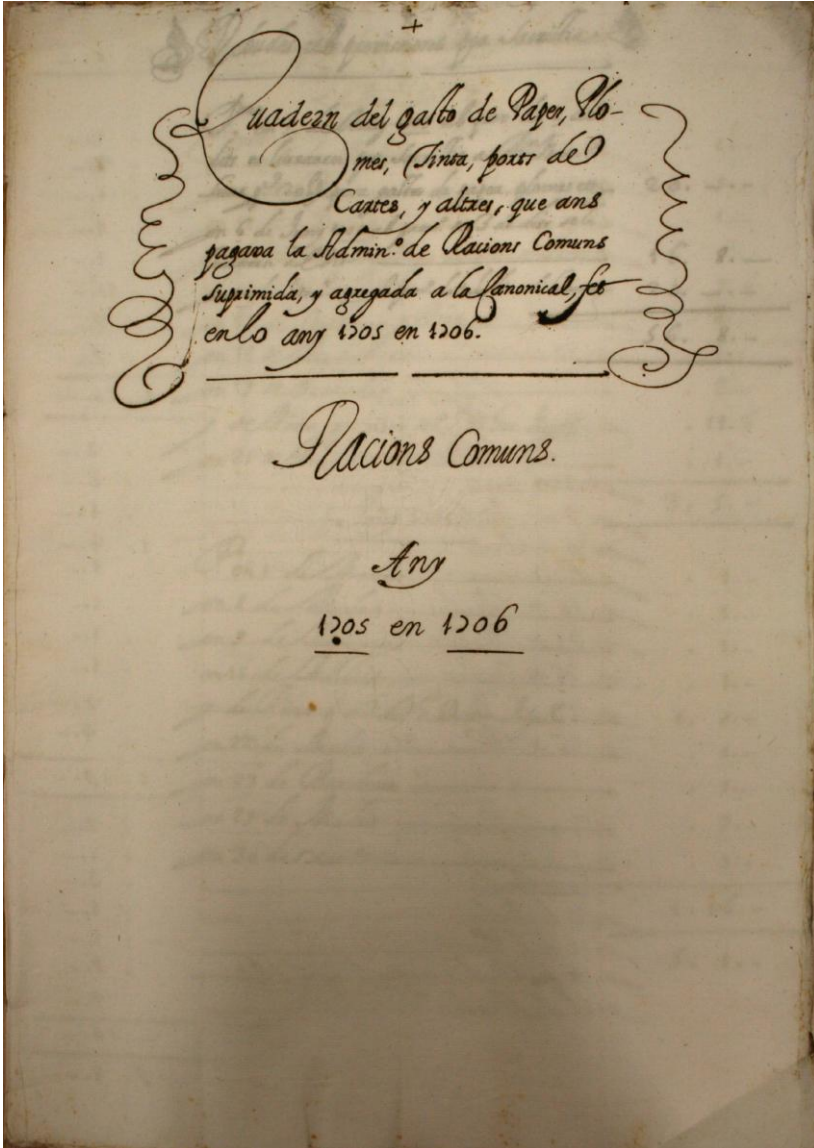 +
Quadern del gasto de Paper, Plo-
mes, Tinta, ports de
Cartes, y altres, que ans
pagava la Admin.º de Racions Comuns
suprimida, y agregada a la Canonical, fet
en lo any 1705 en 1706.
Racions Comuns.
Any
1705 en 1706